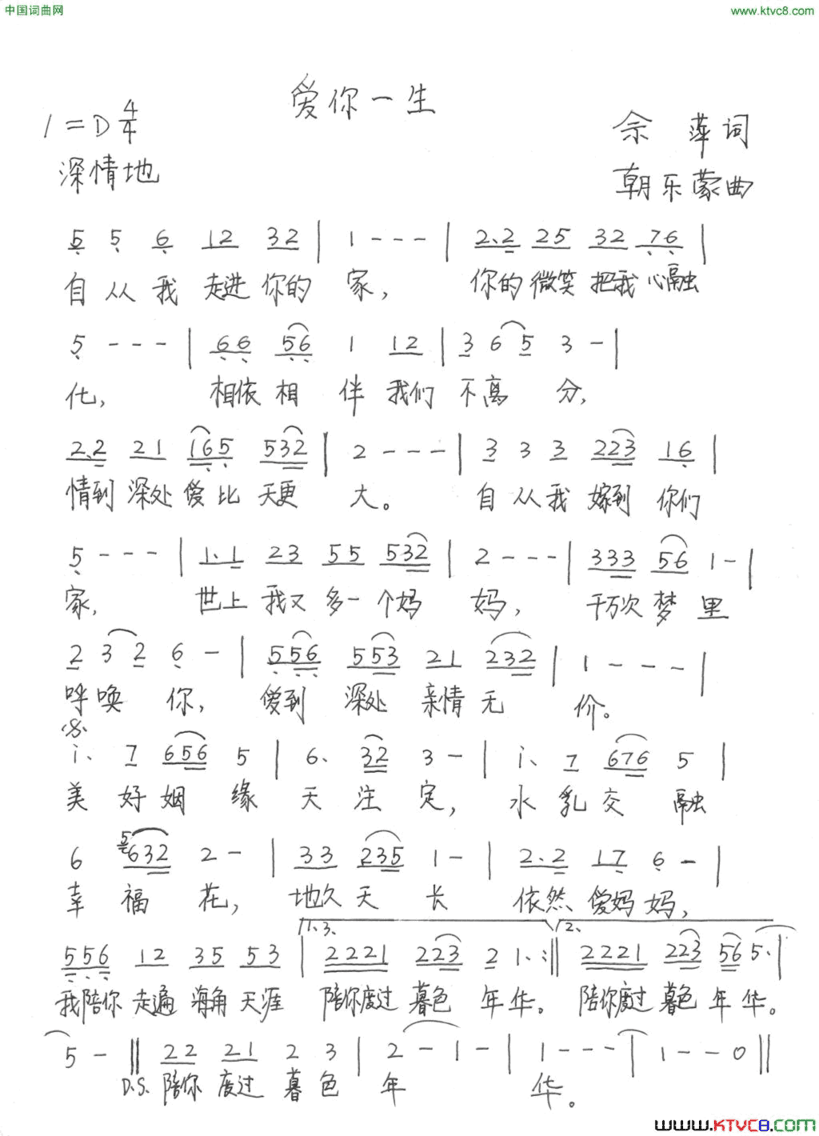 中国词曲网
www.ktvc8.com
爱你一生
1=D 4/4
深情地
佘萍词
朝乐蒙曲
5 5 6 12 32 | 1 - - - | 2.2 25 32 76 |
自从我走进你的家, 你的微笑把我心融
5 - - - | 66 56 1 12 | 3 6 5 3 - |
化, 相依相伴我们不离分,
2.2 21 165 532 | 2 - - - | 3 3 3 223 16 |
情到深处爱比天更大。 自从我嫁到你们
5 - - - | 1.1 23 55 532 | 2 - - - | 333 56 1 - |
家, 世上我又多一个妈妈, 千万次梦里
2 3 2 6 - | 556 553 21 232 | 1 - - - |
呼唤你, 爱到深处亲情无价。
i. 7 656 5 | 6. 32 3 - | i. 7 676 5 |
美好姻缘天注定, 水乳交融
6 5632 2 - | 33 235 1 - | 2.2 17 6 - |
幸福花, 地久天长依然爱妈妈,
1.3. 2.
556 12 35 53 | 2221 223 2 1. :|| 2221 223 56 5. |
我陪你走遍海角天涯 陪你度过暮色年华。 陪你度过暮色年华。
5 - || 22 21 2 3 | 2 - 1 - | 1 - - - | 1 - - 0 ||
D.S. 陪你度过暮色年华。
www.KTVC8.com